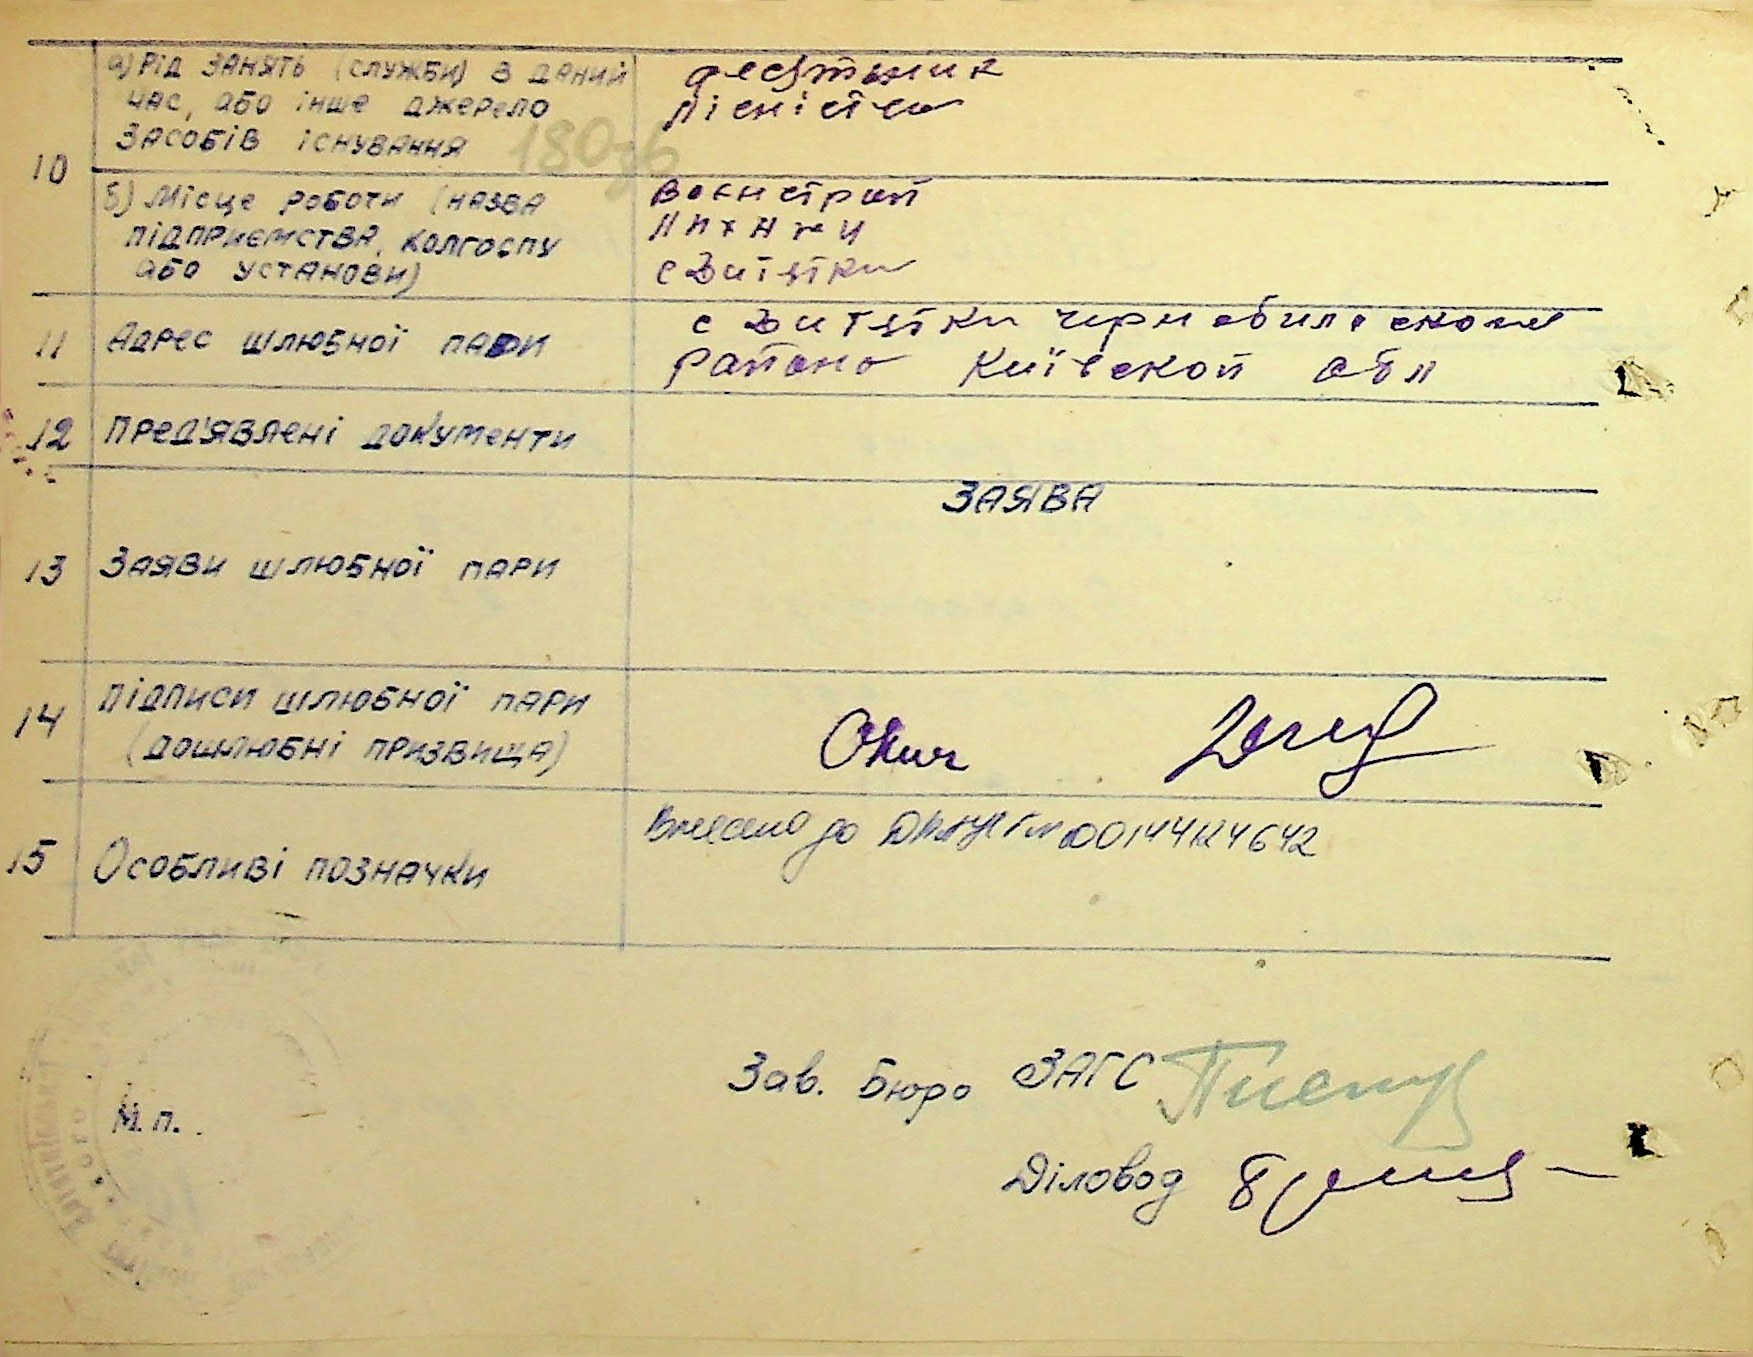 10
а) Рід занять (служби) в даний
час, або інше джерело
засобів існування
десятник
лісництва
б) Місце роботи (назва
підприємства, колгоспу
або установи)
с Дитятки
11
Адрес шлюбної пари
с Дитятки чорнобильского
района Київской обл
12
Пред'явлені документи
ЗАЯВА
13
Заяви шлюбної пари
14
Підписи шлюбної пари
(дошлюбні призвища)
15
Особливі позначки
Внесено до ДРАЦСГ № 00144124642
Зав. Бюро ЗАГС
М.П.
Діловод